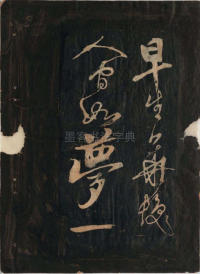 早生白髮
人間如夢一
墨客书法字典